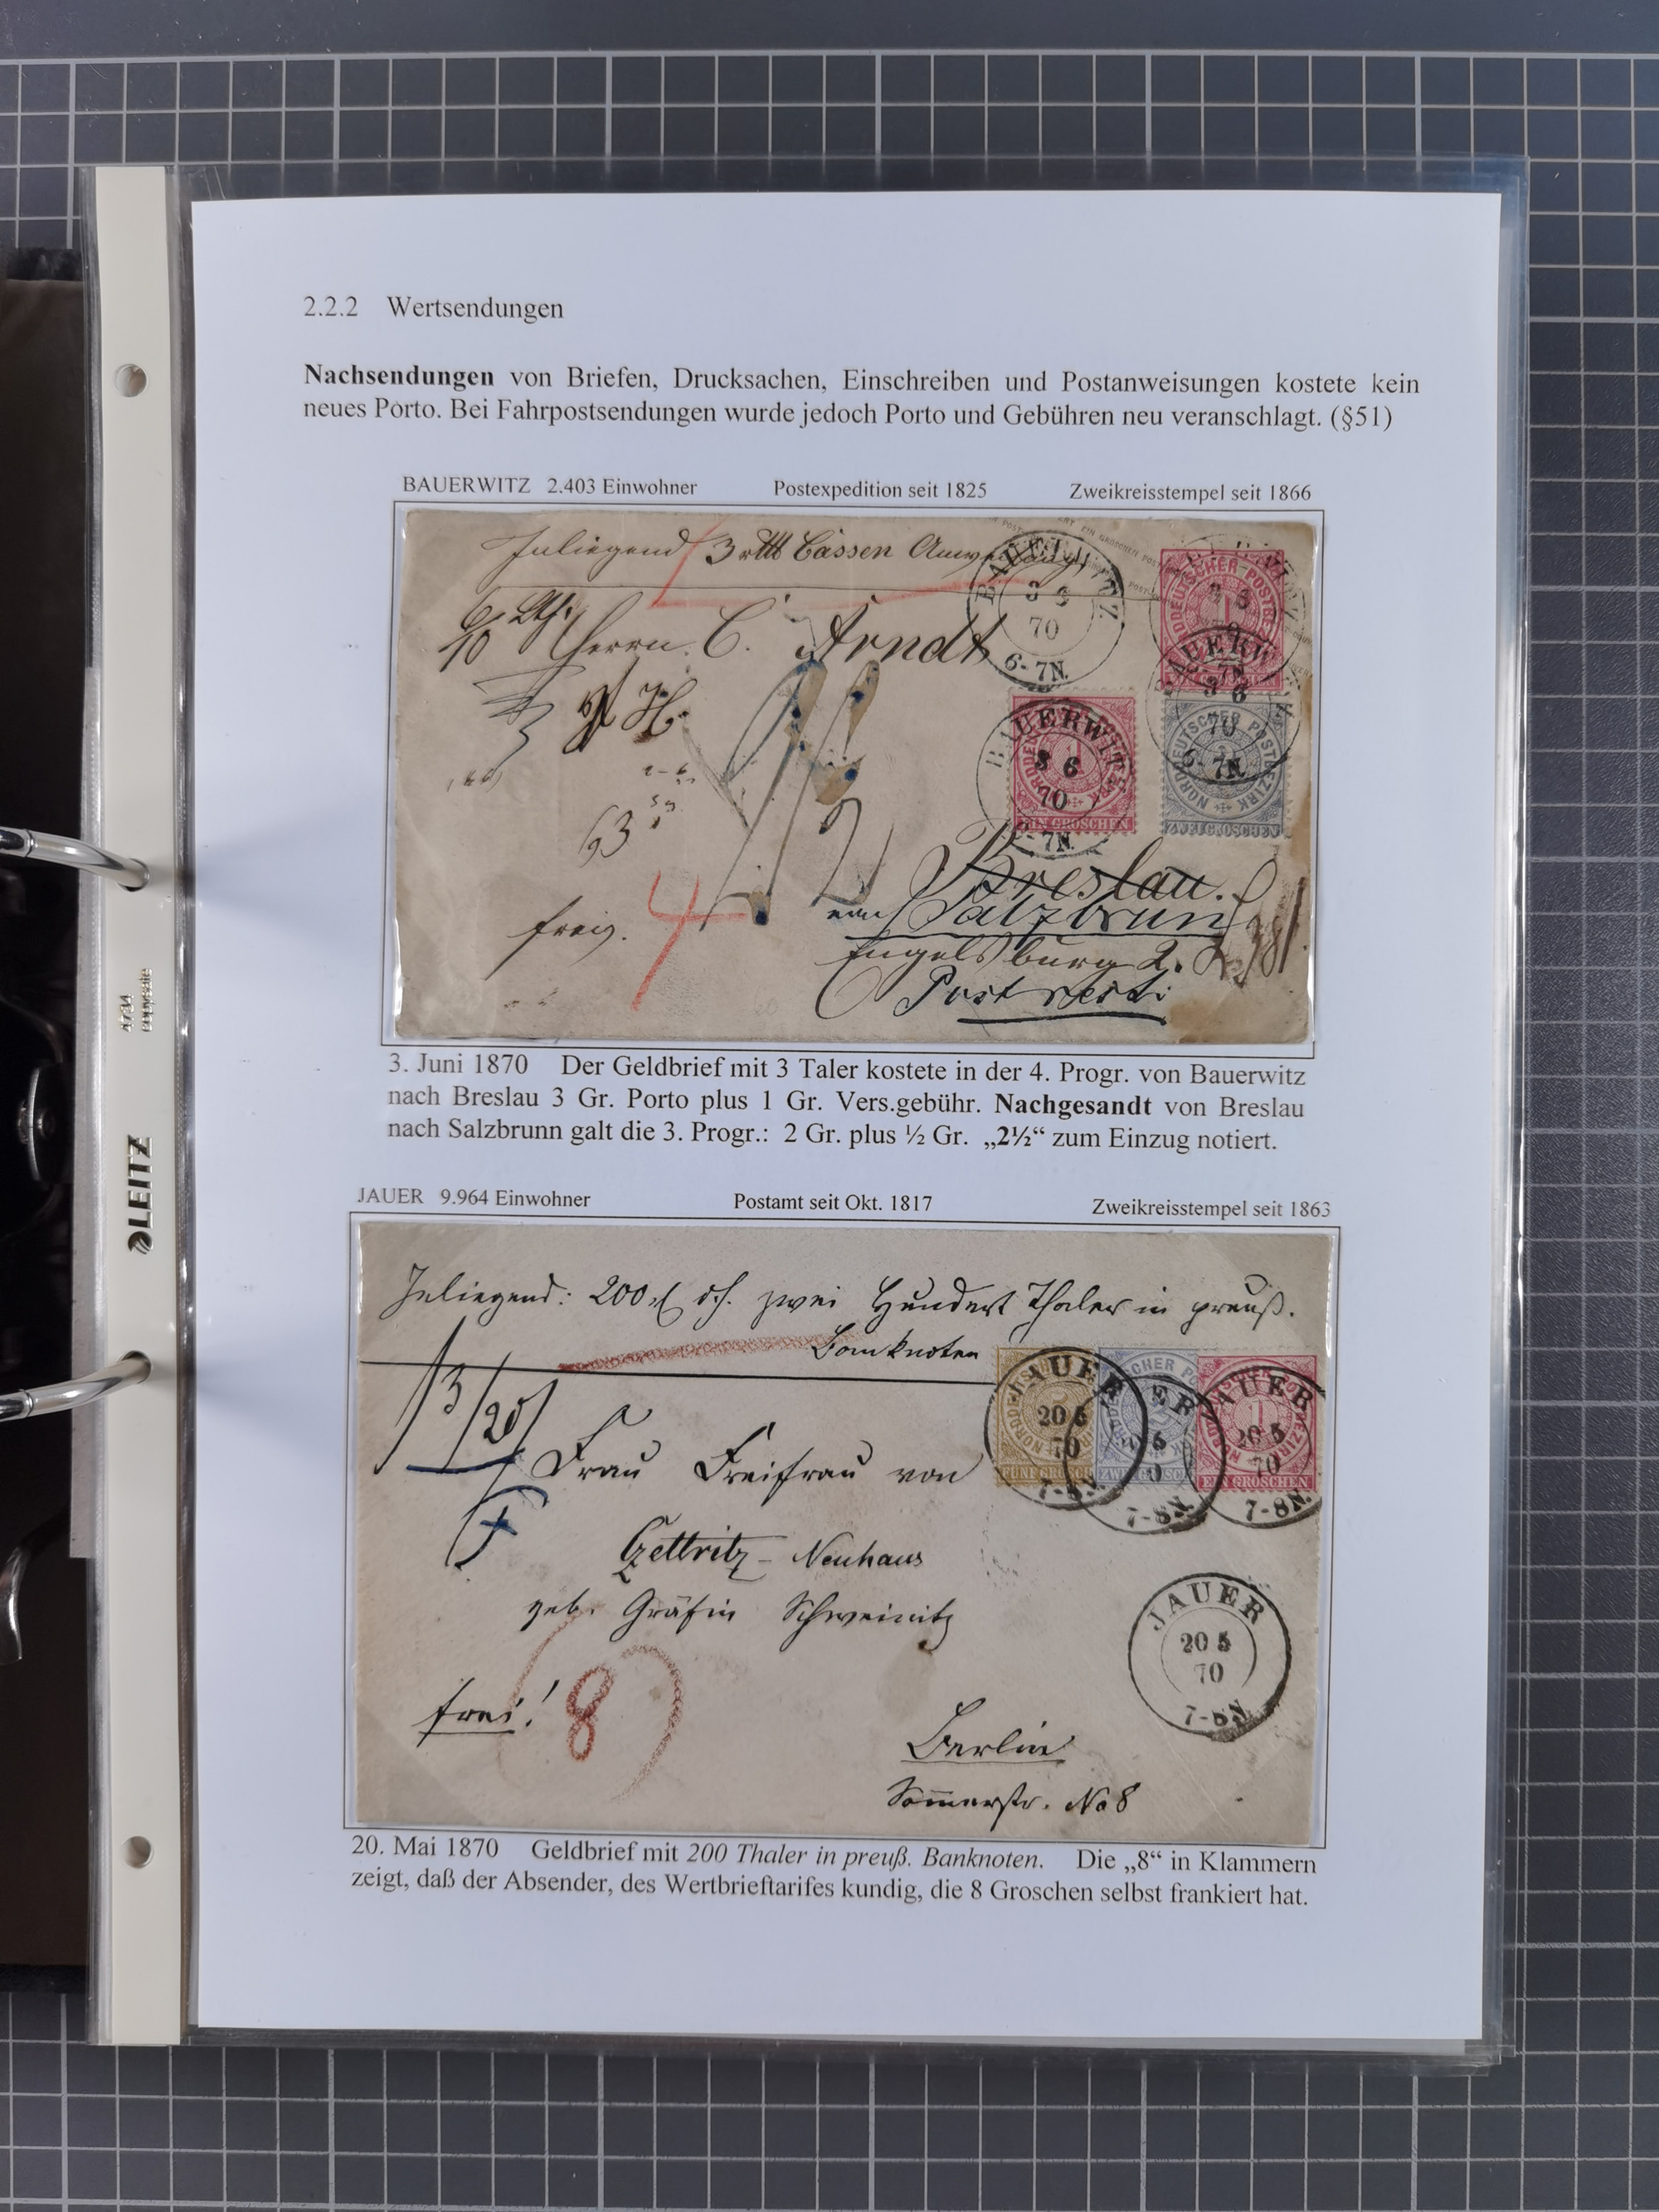 2.2.2 Wertsendungen
Nachsendungen von Briefen, Drucksachen, Einschreiben und Postanweisungen kostete kein
neues Porto. Bei Fahrpostsendungen wurde jedoch Porto und Gebühren neu veranschlagt. (§51)
BAUERWITZ 2.403 Einwohner Postexpedition seit 1825 Zweikreisstempel seit 1866
Inliegend 3 Cassen
Herrn C. Arndt
BAUERWITZ
3 6
70
6-7N.
BAUERWITZ
3 6
70
6-7N.
EIN GROSCHEN
NORDDEUTSCHER POSTBEZIRK
ZWEI GROSCHEN
63
4
Breslau.
Salzbrunn
Engelsburg
Post rest.
3. Juni 1870 Der Geldbrief mit 3 Taler kostete in der 4. Progr. von Bauerwitz
nach Breslau 3 Gr. Porto plus 1 Gr. Vers.gebühr. Nachgesandt von Breslau
nach Salzbrunn galt die 3. Progr.: 2 Gr. plus ½ Gr. „2½“ zum Einzug notiert.
JAUER 9.964 Einwohner Postamt seit Okt. 1817 Zweikreisstempel seit 1863
Inliegend: 200 zwei Hundert Thaler in preuß.
Banknoten
JAUER
20 5
70
7-8N.
FÜNF GROSCHEN
ZWEI GROSCHEN
EIN GROSCHEN
Frau Freifrau von
Czettritz-Neuhaus
geb. Gräfin Schweinitz
JAUER
20 5
70
7-8N.
frei!
(8)
Berlin
Sommerstr. No 8
20. Mai 1870 Geldbrief mit 200 Thaler in preuß. Banknoten. Die „8“ in Klammern
zeigt, daß der Absender, des Wertbrieftarifes kundig, die 8 Groschen selbst frankiert hat.
LEITZ
4734